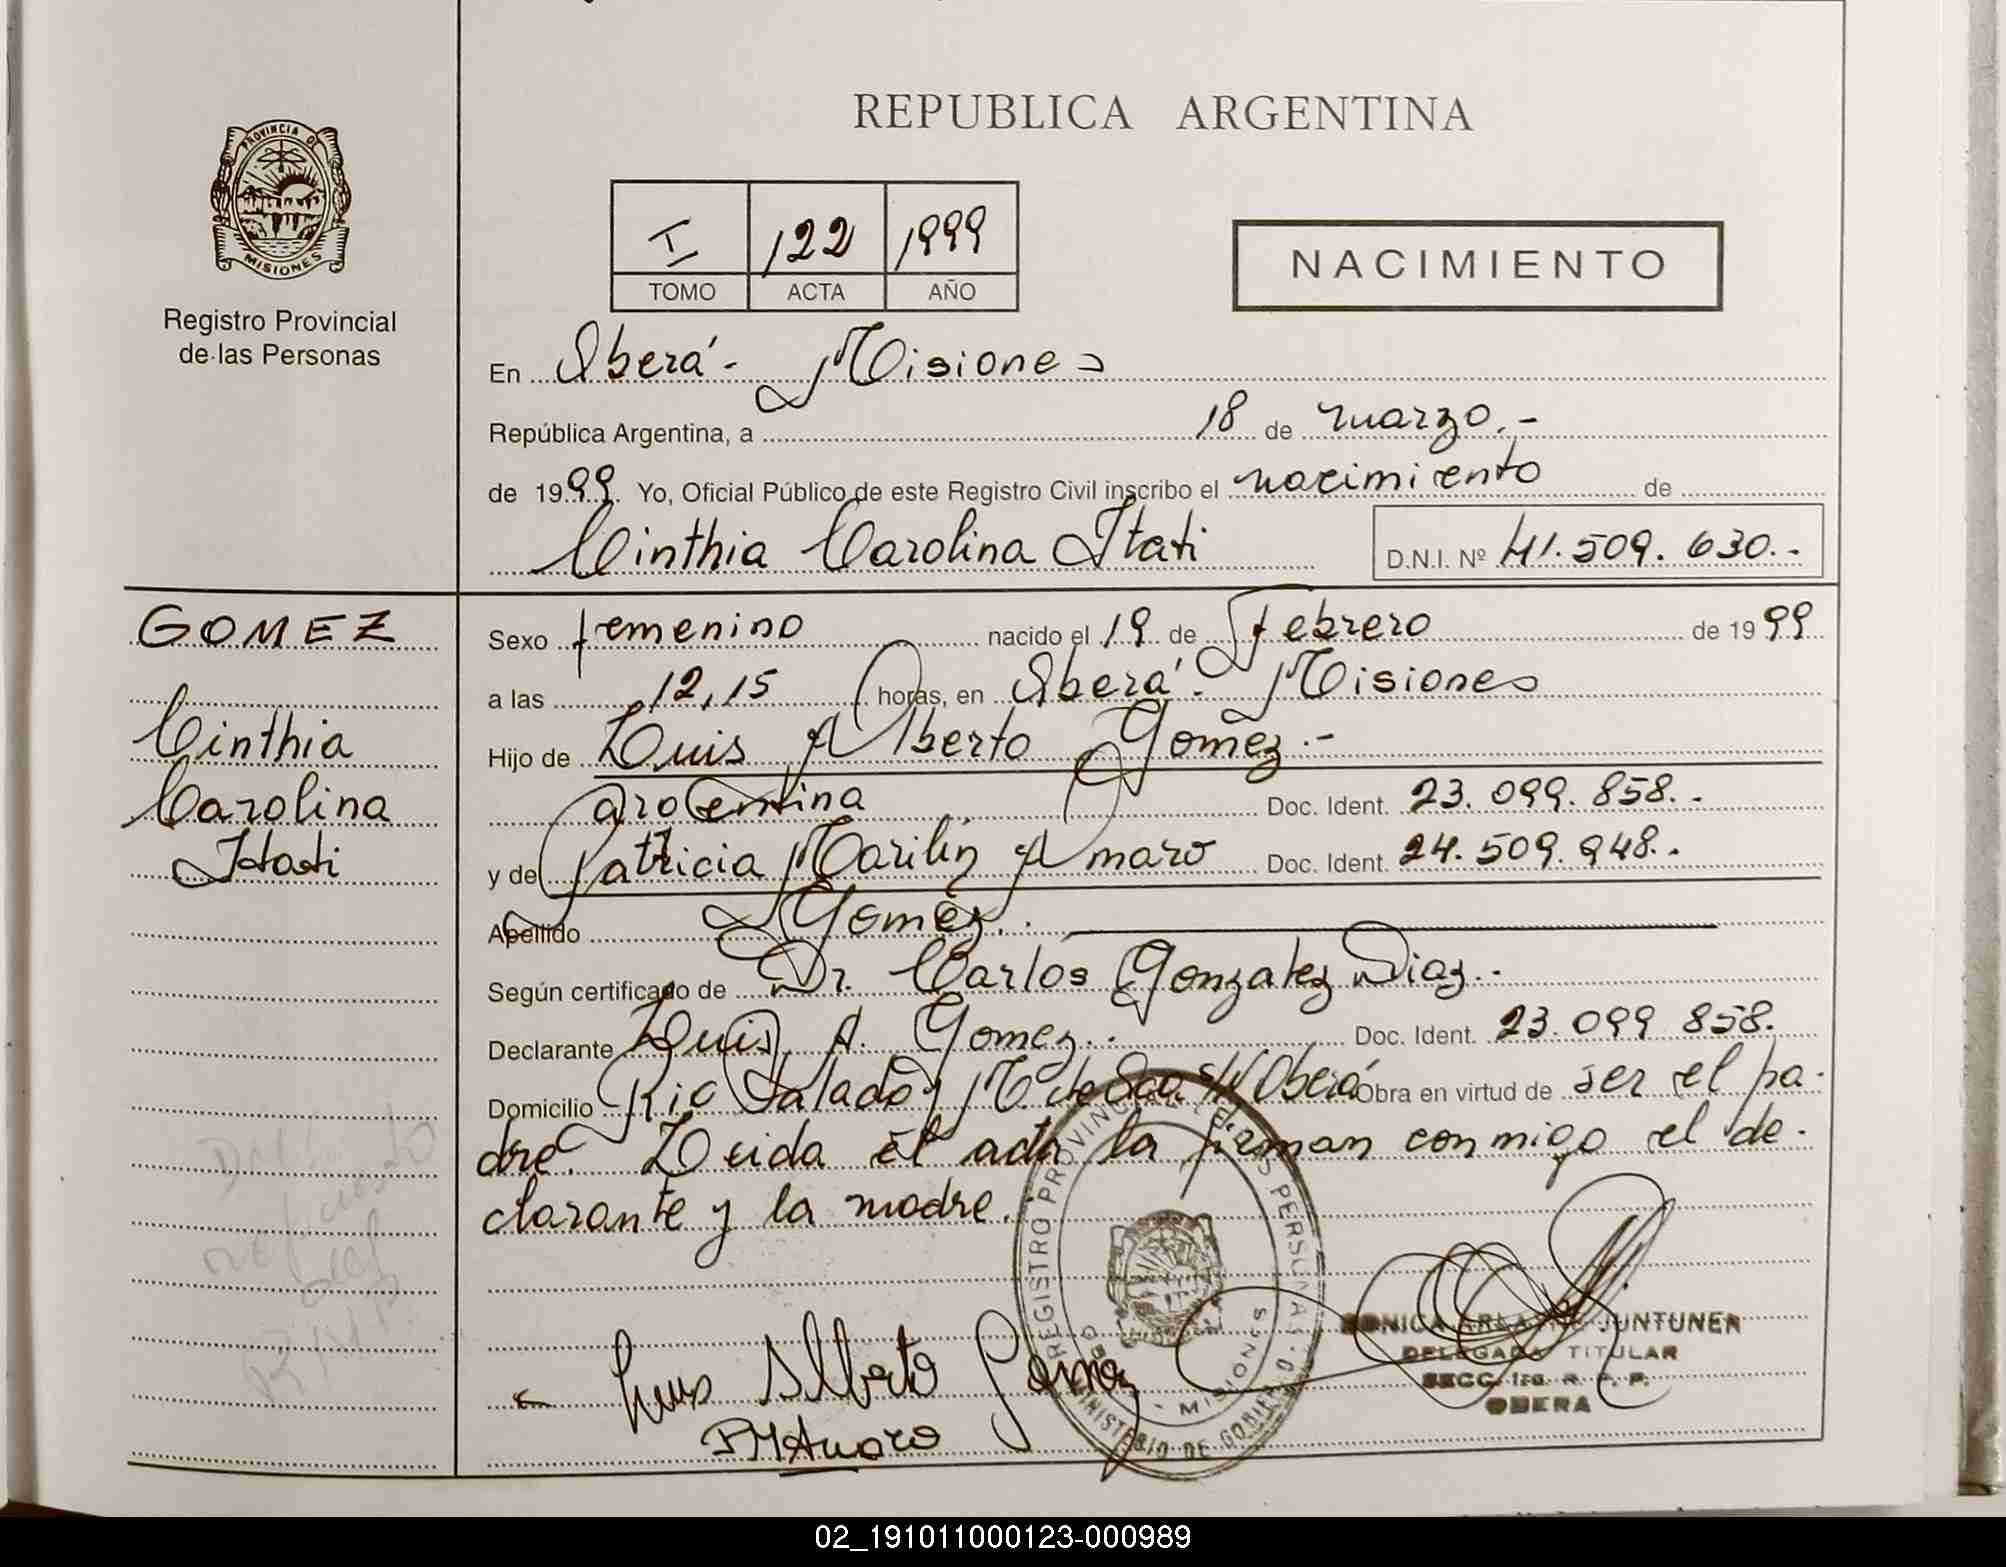 REPUBLICA ARGENTINA
PROVINCIA DE
MISIONES
Registro Provincial
de las Personas
I 122 1999
TOMO ACTA AÑO
NACIMIENTO
En Oberá - Misiones
República Argentina, a 18 de marzo.-
de 1999. Yo, Oficial Público de este Registro Civil inscribo el nacimiento de
Cinthia Carolina Itati D.N.I. Nº 41.509.630.-
GOMEZ
Cinthia
Carolina
Itati
Sexo femenino nacido el 19 de Febrero de 1999
a las 12,15 horas, en Oberá - Misiones
Hijo de Luis Alberto Gomez.-
argentina Doc. Ident. 23.099.858.-
y de Patricia Marilin Amaro Doc. Ident. 24.509.948.-
Apellido Gomez.
Según certificado de Dr. Carlos Gonzalez Diaz.-
Declarante Luis A. Gomez.. Doc. Ident. 23.099 858.
Domicilio Rio Salado y M. de S/N Oberá Obra en virtud de ser el pa-
dre. Leida el acta la firman conmigo el de-
clarante y la madre.
REGISTRO PROVINCIAL DE LAS PERSONAS
MINISTERIO DE GOBIERNO
- MISIONES
Luis Alberto Gomez
PMAmaro
JUNTUNEN
DELEGADA TITULAR
SECC. 1ra. R. P. P.
OBERA
02_191011000123-000989